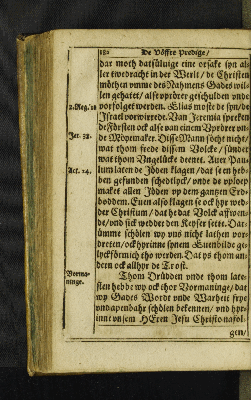 182 De Vöffte Predige/
dar moth datsüluige eine orsake syn al=
ler twedracht in der Werlt / de Christen
möthen ümme des Nahmens Gades wil=
len gehatet / alse vprörer geschulden vnde
2. Reg. 18 vorfolget werden. Elias moste de syn / de
Israel vorwirrede. Van Jeremia spreken
de Försten ock alse van einem Vprörer vn=
Jer. 38. de Möyemaker. Disse Mann söcht nicht /
wat thom frede dissem Volcke / sünder
wat thom Vngelücke denet. Auer Pau=
Act. 24. lum laten de Jöden klagen / dat se en heb=
ben gefunden schedtlyck / vnde de vploep
maket allen Jöden vp dem gantzen Erd=
boddem. Euen also klagen se ock hyr wed=
der Christum / dat he dat Volck affwen=
de / vnd sick wedder den Keyser sette. Dar=
ümme schölen wy vns nicht lathen vor=
dreten / ock hyrinne synem Euenbilde ge=
lyckförmich tho werden. Dat ys thom an=
dern ock allhyr de Trost.
Vorma=
ninge. Thom Drüdden vnde thom late=
sten hebbe wy ock thor Vormaninge / dat
wy Gades Wordt vnde Warheit frye
vnd apenbahr schölen bekennen / vnd hyr=
inne vnsem HEren Jesu Christo nafol=
gen /